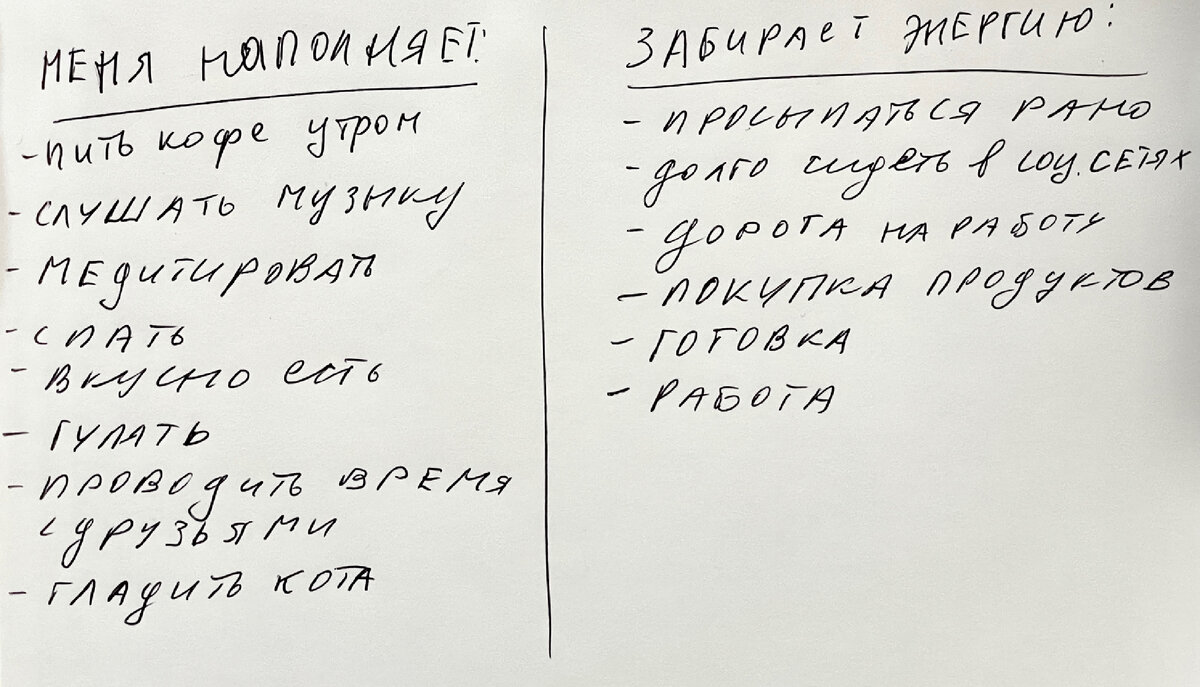 МЕНЯ НАПОЛНЯЕТ:
- ПИТЬ КОФЕ УТРОМ
- СЛУШАТЬ МУЗЫКУ
- МЕДИТИРОВАТЬ
- СПАТЬ
- ВКУСНО ЕСТЬ
- ГУЛЯТЬ
- ПРОВОДИТЬ ВРЕМЯ
С ДРУЗЬЯМИ
- ГЛАДИТЬ КОТА
ЗАБИРАЕТ ЭНЕРГИЮ:
- ПРОСЫПАТЬСЯ РАНО
- ДОЛГО СИДЕТЬ В СОЦ.СЕТЯХ
- ДОРОГА НА РАБОТУ
- ПОКУПКА ПРОДУКТОВ
- ГОТОВКА
- РАБОТА